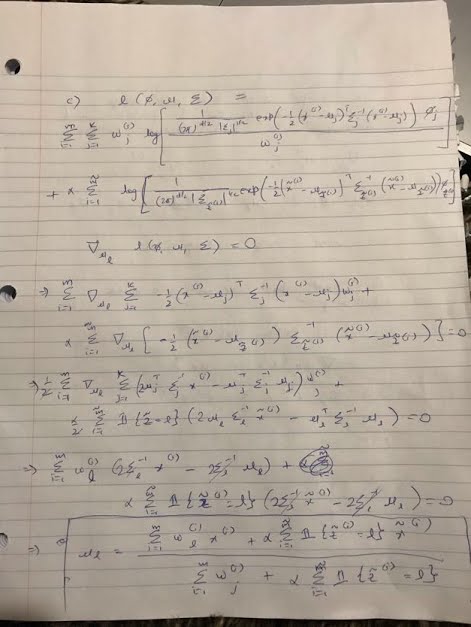 c) ℓ(φ, μ, Σ) =
Σ_{i=1}^{m} Σ_{j=1}^{k} w_j^{(i)} log [ \frac{ \frac{1}{(2π)^{d/2} |Σ_j|^{1/2}} exp(-\frac{1}{2}(x^{(i)} - μ_j)^T Σ_j^{-1} (x^{(i)} - μ_j)) φ_j }{ w_j^{(i)} } ]
+ α Σ_{i=1}^{m̃} log [ \frac{1}{(2π)^{d/2} |Σ_{z̃^{(i)}}|^{1/2}} exp(-\frac{1}{2}(x̃^{(i)} - μ_{z̃^{(i)}})^T Σ_{z̃^{(i)}}^{-1} (x̃^{(i)} - μ_{z̃^{(i)}})) φ_{z̃^{(i)}} ]
∇_{μ_l} ℓ(φ, μ, Σ) = 0
⇒ Σ_{i=1}^{m} ∇_{μ_l} Σ_{j=1}^{k} -\frac{1}{2}(x^{(i)} - μ_j)^T Σ_j^{-1} (x^{(i)} - μ_j) w_j^{(i)} +
α Σ_{i=1}^{m̃} ∇_{μ_l} [ -\frac{1}{2}(x̃^{(i)} - μ_{z̃^{(i)}}) Σ_{z̃^{(i)}}^{-1} (x̃^{(i)} - μ_{z̃^{(i)}}) ] = 0
⇒ \frac{1}{2} Σ_{i=1}^{m} ∇_{μ_l} Σ_{j=1}^{k} (2μ_j^T Σ_j^{-1} x^{(i)} - μ_j^T Σ_j^{-1} μ_j) w_j^{(i)} +
\frac{α}{2} Σ_{i=1}^{m̃} 𝟙{z̃^{(i)} = l} (2μ_l Σ_l^{-1} x̃^{(i)} - μ_l^T Σ_l^{-1} μ_l) = 0
⇒ Σ_{i=1}^{m} w_l^{(i)} (2Σ_l^{-1} x^{(i)} - 2Σ_l^{-1} μ_l) +
α Σ_{i=1}^{m̃} 𝟙{z̃^{(i)} = l} (2Σ_l^{-1} x̃^{(i)} - 2Σ_l^{-1} μ_l) = 0
⇒ μ_l = \frac{ Σ_{i=1}^{m} w_l^{(i)} x^{(i)} + α Σ_{i=1}^{m̃} 𝟙{z̃^{(i)} = l} x̃^{(i)} }{ Σ_{i=1}^{m} w_j^{(i)} + α Σ_{i=1}^{m̃} 𝟙{z̃^{(i)} = l} }